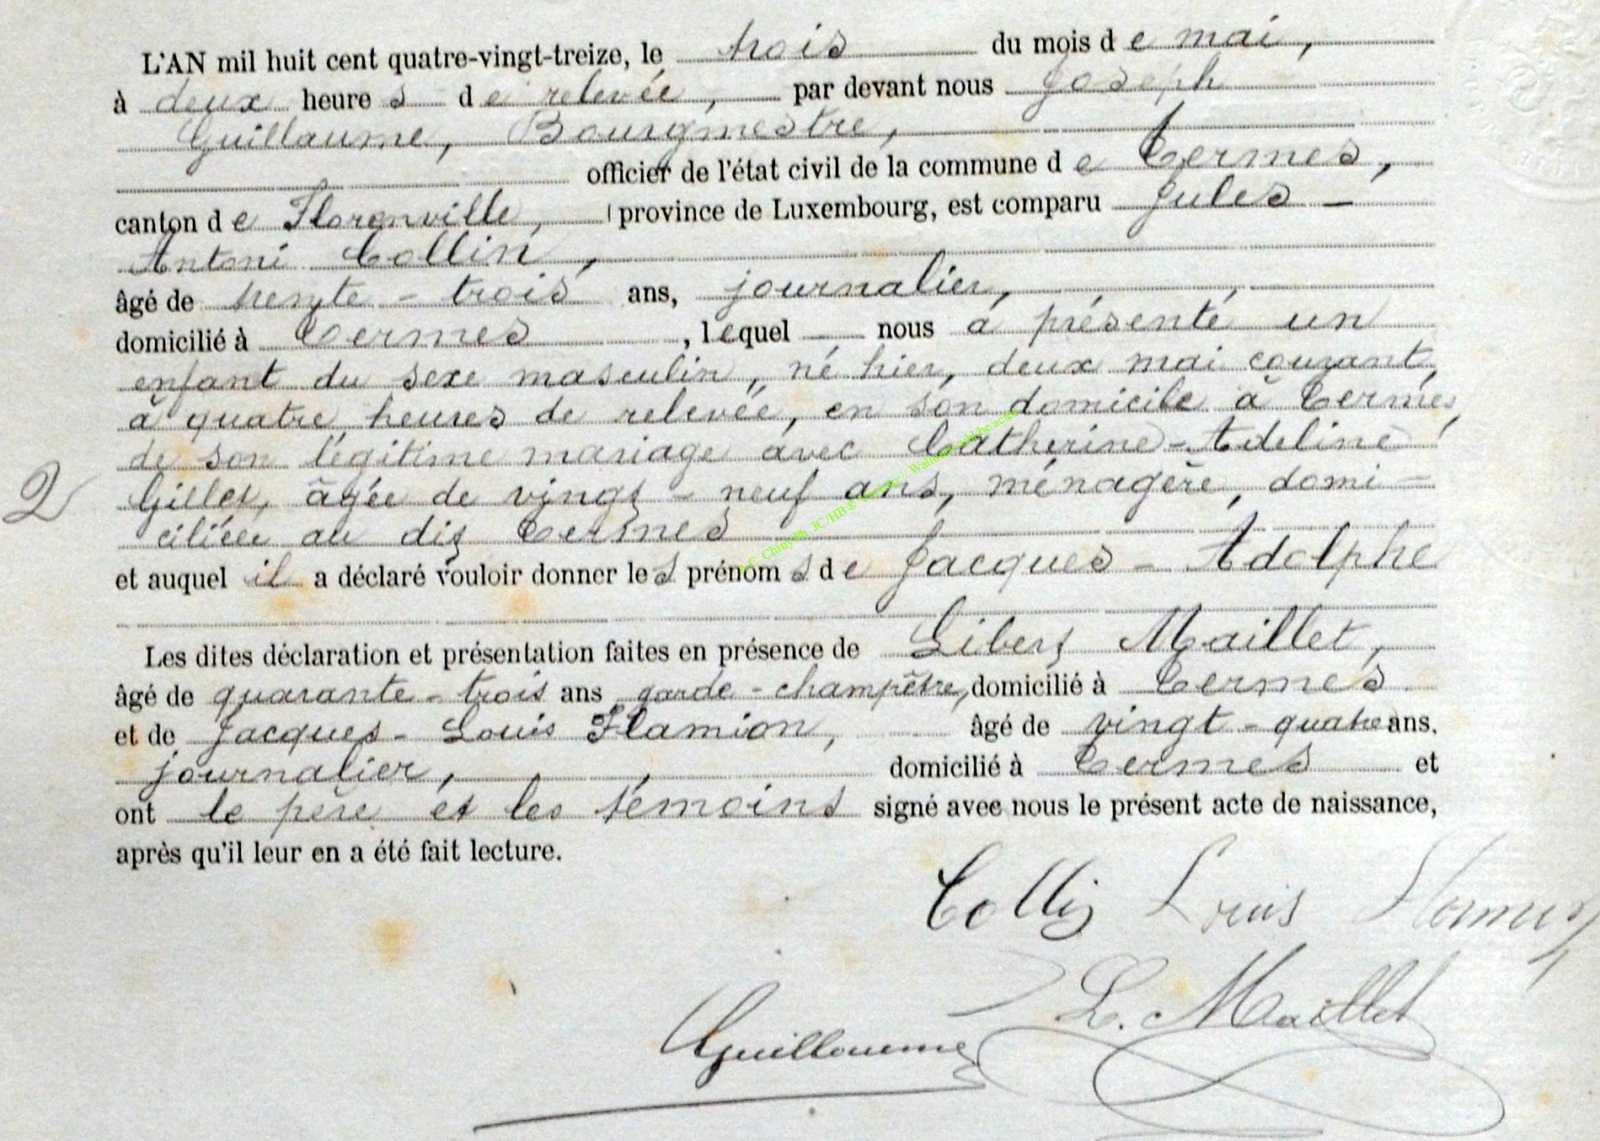 L'AN mil huit cent quatre-vingt-treize, le trois du mois de mai,
à deux heures de relevée, par devant nous Joseph
Guillaume, Bourgmestre,
officier de l'état civil de la commune de Termes,
canton de Florenville, province de Luxembourg, est comparu Jules -
Antoni Collin,
âgé de trente-trois ans, journalier,
domicilié à Termes, lequel nous a présenté un
enfant du sexe masculin, né hier, deux mai courant,
à quatre heures de relevée, en son domicile à Termes,
de son légitime mariage avec Catherine-Adeline
2 Gillet, âgée de vingt-neuf ans, ménagère, domi-
ciliée au dit Termes
et auquel il a déclaré vouloir donner les prénoms de Jacques-Adolphe
Les dites déclaration et présentation faites en présence de Libert Maillet,
âgé de quarante-trois ans garde-champêtre, domicilié à Termes
et de Jacques-Louis Flamion, âgé de vingt-quatre ans.
journalier, domicilié à Termes et
ont le père et les témoins signé avec nous le présent acte de naissance,
après qu'il leur en a été fait lecture.
Collin Louis Flamion
L. Maillet
Guillaume